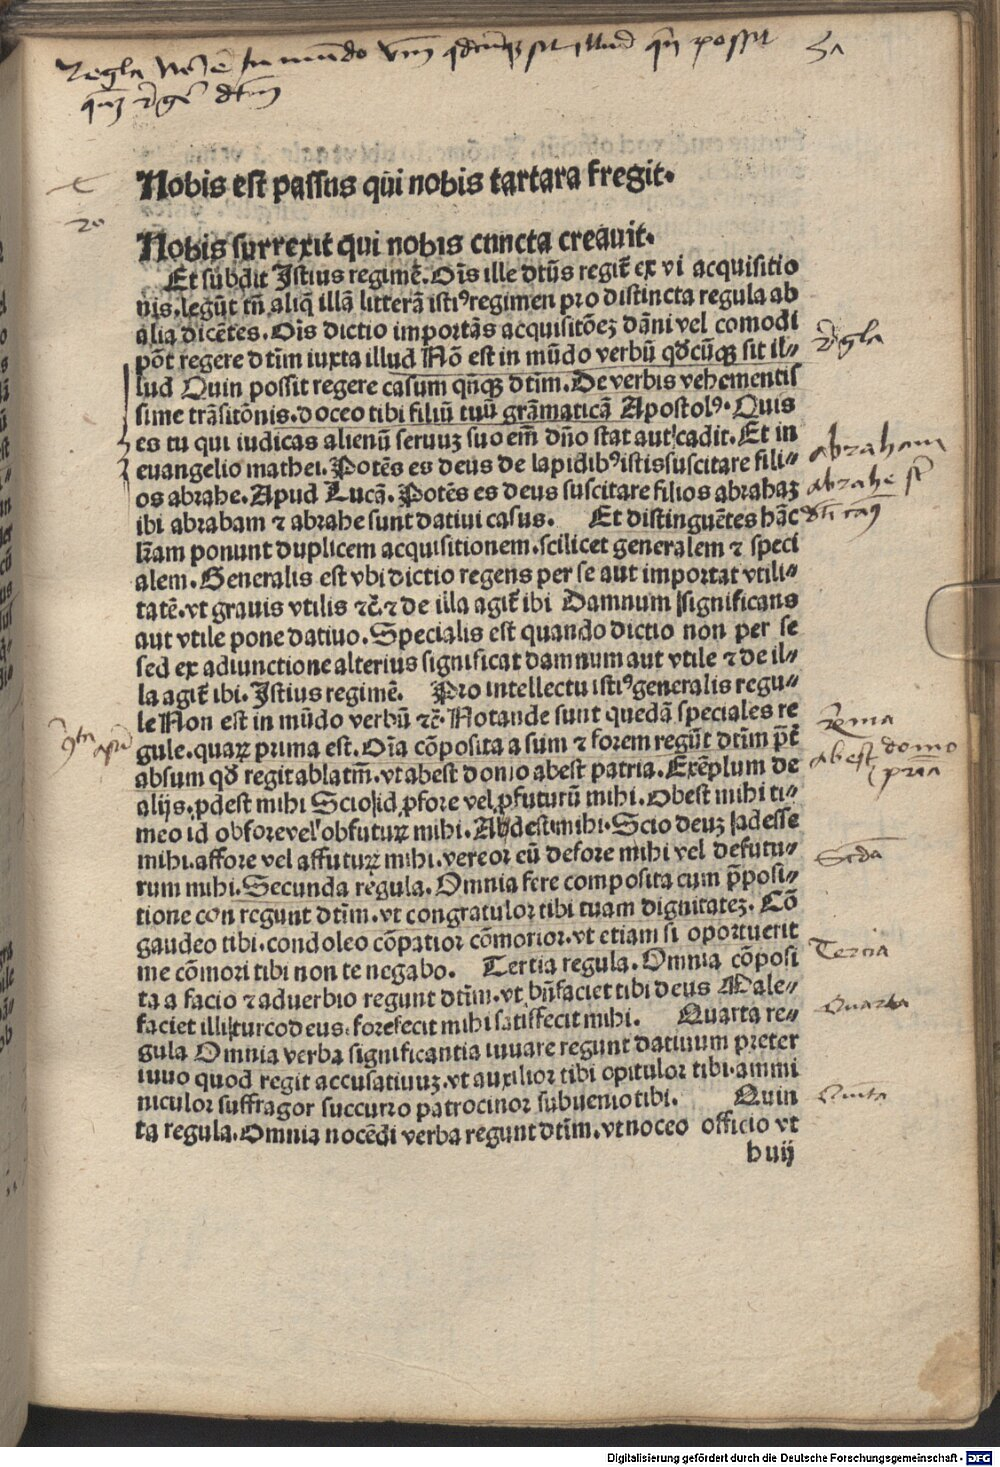 Regla Nō ē in mūdo vm̄ qdcūqꝫ sit illud qn̄ possit
qn̄qꝫ r̄ge dtm̄
Nobis est passus qui nobis tartara fregit.
Nobis surrexit qui nobis cuncta creauit.
Et subdit Istius regimē. Oīs ille dtūs regit̄ ex vi acquisitio
nis. legūt tn̄ aliq̄ illā litterā istiꝰ regimen pro distincta regula ab
alia dicētes. Oīs dictio importās acquisitōeꝫ dāni vel comodi
pōt regere dtīm iuxta illud Nō est in mūdo verbū qdcūqꝫ sit il⸗
lud Quin possit regere casum qn̄qꝫ dtīm. De verbis vehementis
sime trāsitōnis. doceo tibi filiū tuū grāmaticā Apostolꝰ. Quis
es tu qui iudicas alienū seruuꝫ suo em̄ dn̄o stat aut cadit. Et in
euangelio mathei. Potēs es deus de lapidibꝰ istis suscitare fili⸗
os abrahe. Apud Lucā. Potēs es deus suscitare filios abrahaꝫ
ibi abrabam ⁊ abrahe sunt datiui casus. Et distinguētes hāc
lr̄am ponunt duplicem acquisitionem. scilicet generalem ⁊ speci
alem. Generalis est vbi dictio regens per se aut importat vtili⸗
tatē. vt grauis vtilis ⁊c̄. ⁊ de illa agit̄ ibi Damnum significans
aut vtile pone datiuo. Specialis est quando dictio non per se
sed ex adiunctione alterius significat damnum aut vtile ⁊ de il⸗
la agit̄ ibi. Istius regimē. Pro intellectu istiꝰ generalis regu⸗
le Non est in mūdo verbū ⁊c̄. Notande sunt quedā speciales re
gule. quaꝝ prima est. Oīa cōposita a sum ⁊ forem regūt dtīm p̄t̄
absum qd regit ablatm̄. vt abest domo abest patria. Exēplum de
alijs. ꝓdest mihi Scio id ꝓfore vel ꝓfuturū mihi. Obest mihi ti⸗
meo id obfore vel obfutuꝝ mihi. Abdest mihi. Scio deuꝫ adesse
mihi. affore vel affutuꝝ mihi. vereor eū defore mihi vel defutu⸗
rum mihi. Secunda regula. Omnia fere composita cum p̄posi⸗
tione con regunt dtīm. vt congratulor tibi tuam dignitateꝫ. Cō
gaudeo tibi. condoleo cōpatior cōmorior. vt etiam si oportuerit
me cōmori tibi non te negabo. Tertia regula. Omnia cōposi
ta a facio ⁊ aduerbio regunt dtīm. vt bn̄faciet tibi deus Male⸗
faciet illi turco deus. forefecit mihi satisfecit mihi. Quarta re⸗
gula Omnia verba significantia iuuare regunt datiuum preter
iuuo quod regit accusatiuuꝫ. vt auxilior tibi opitulor tibi. ammi
niculor suffragor succurro patrocinor subuenio tibi. Quin
ta regula. Omnia nocēdi verba regunt dtīm. vt noceo officio vt
b uij
r̄gla
abraham
abrahe st̄
dti casꝰ
p̄ma
abest domo
pr̄ia
Scdā
Tercia
Quarta
Quīta
Digitalisierung gefördert durch die Deutsche Forschungsgemeinschaft - DFG